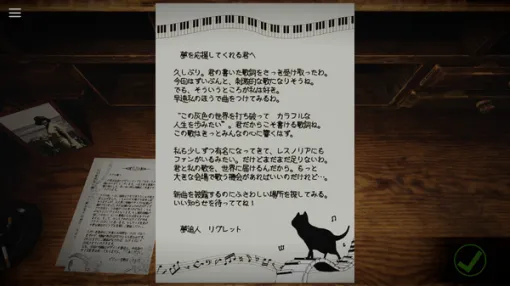 夢を応援してくれる君へ
久しぶり。君の書いた歌詞をさっき受け取ったわ。
今回はずいぶんと、刺激的な歌になりそうね。
でも、そういうところが私は好き。
早速私のほうで曲をつけてみるわ。
“この灰色の世界を打ち破って カラフルな
人生を歩みたい”。君だからこそ書ける歌詞ね。
この歌はきっとみんなの心に響くはず。
私も少しずつ有名になってきて、レスノリアにも
ファンがいるみたい。だけどまだまだ足りないわ。
君と私の歌を、世界に届けるんだから。もっと
大きな会場で歌う機会があればいいのだけれど…。
新曲を披露するのにふさわしい場所を探してみる。
いい知らせを待っててね！
夢追人 リグレット